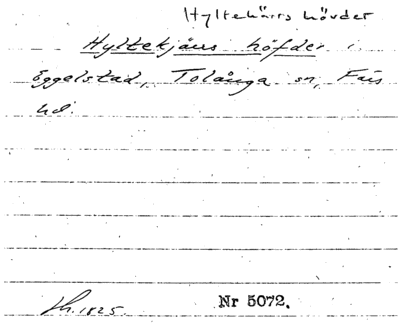 Hyltekärrs hövder
Hyltekjäns höfder i
Eggelstad, Tolånga sn, Färs
hd.
1825. Nr 5072.